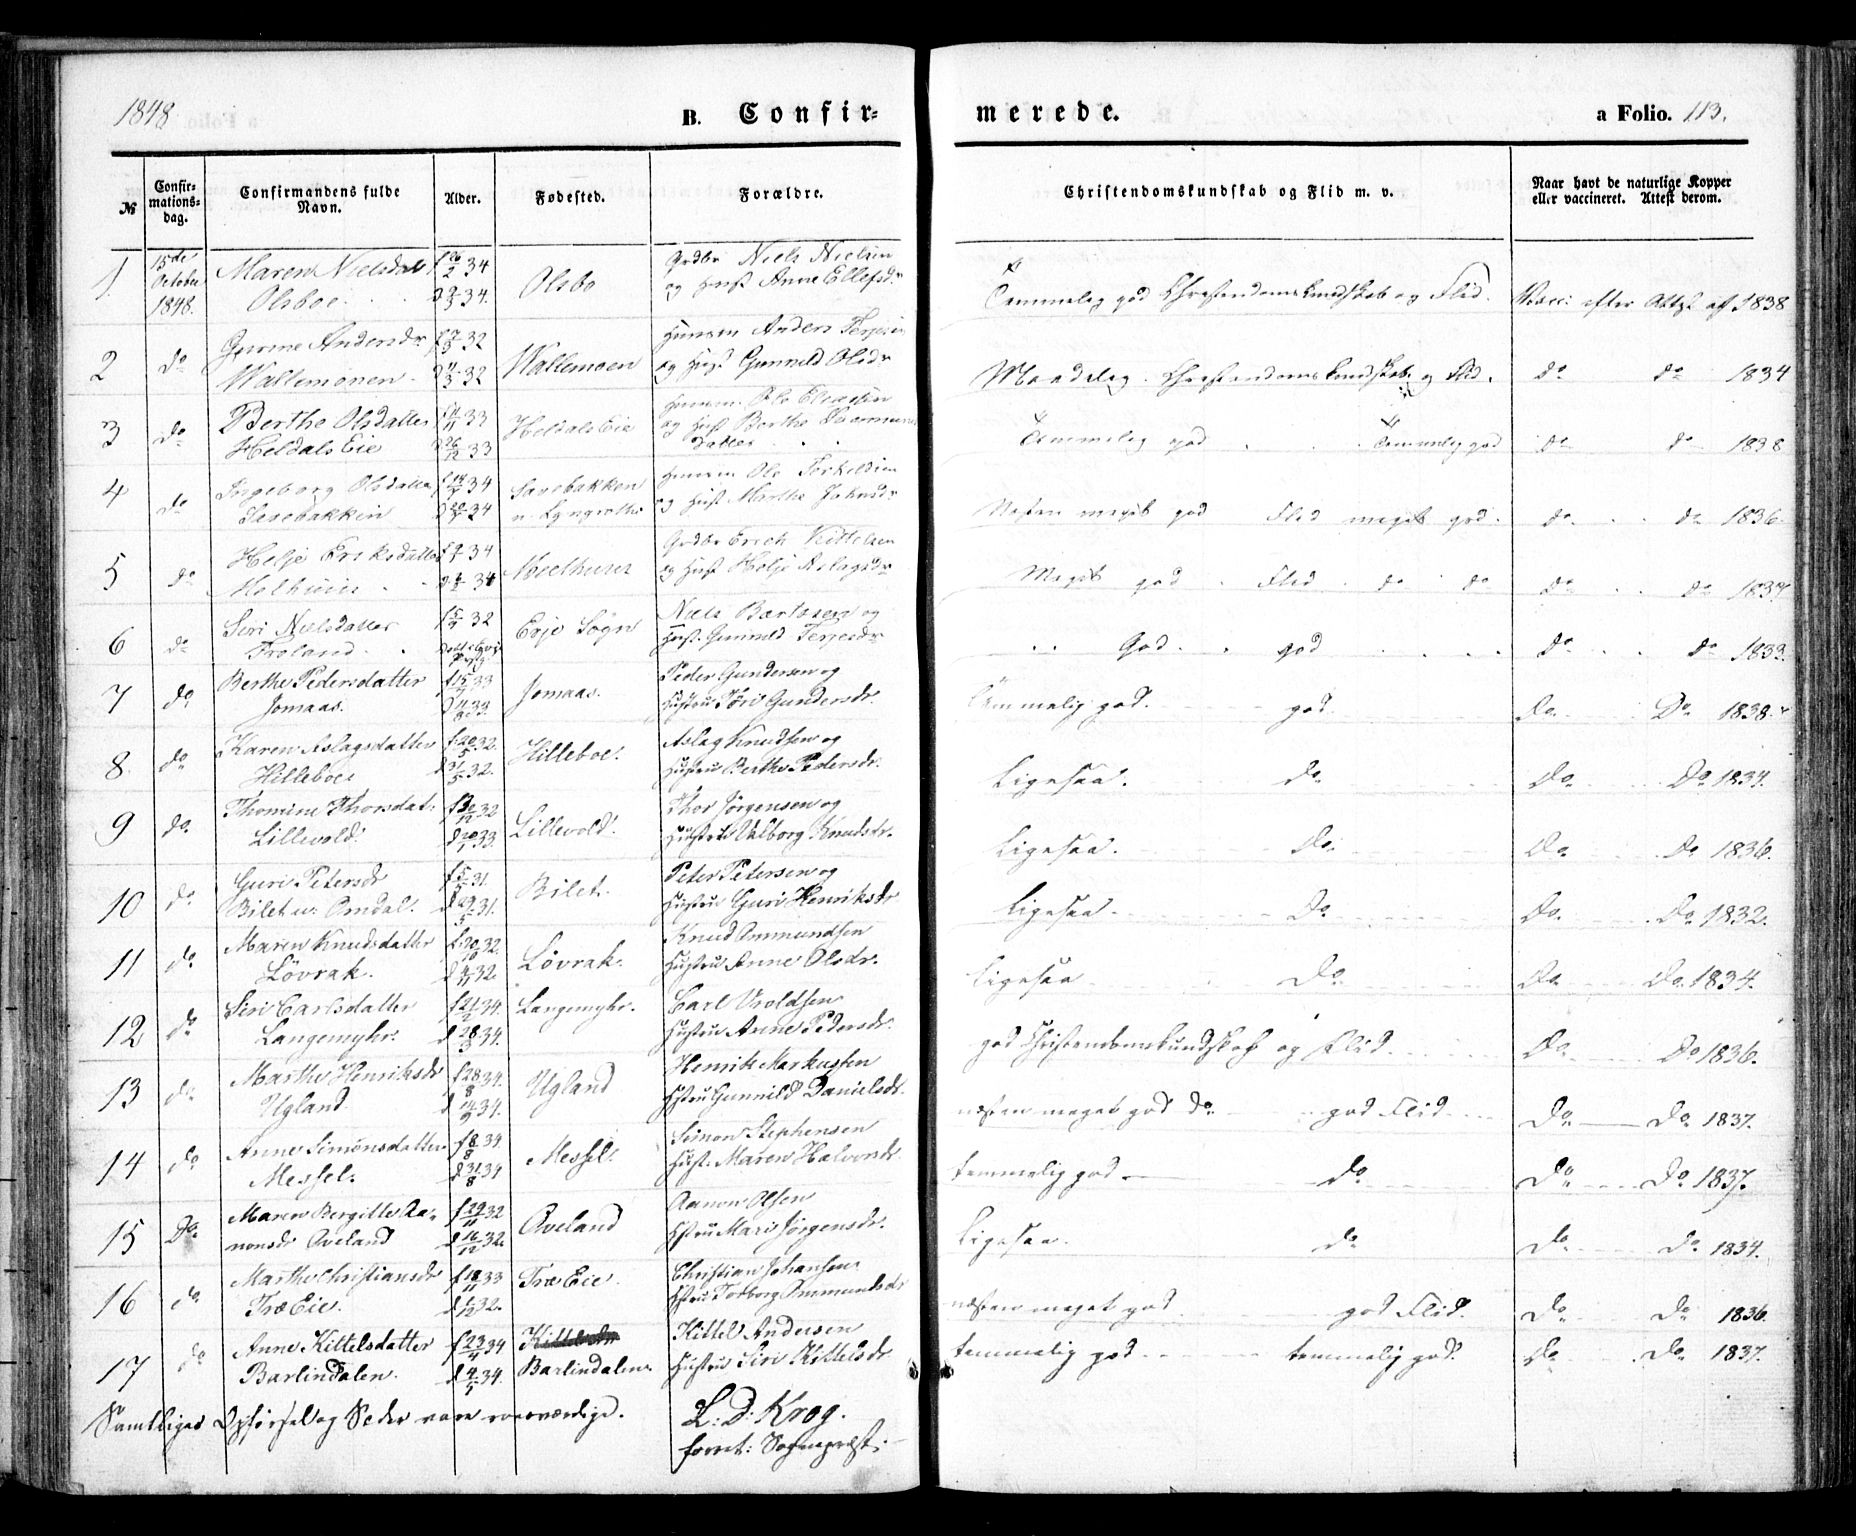 1848.
B. Confir-
merede.
a Folio. 113.
№
Confir-
mations-
dag.
Confirmandens fulde
Navn.
Alder.
Fødested.
Forældre.
Christendomskundskab og Flid m. v.
Naar havt de naturlige Kopper
eller vaccineret. Attest derom.
1.
15de
October
1848.
Maren Nielsdatt
Olsboe.
f 34
D 34.
Olsbo
Grdbr Niels Nielsen
og Hust Anne Ellefsdr
Temmelig god Christendomskundskab og Flid.
Vacci efter Attest af 1838
2
do
Gurine Andersdr
Wallemonen
32
32
Wallemoen
Huusm Anders Terjesen
og Hust Gunneld Olsdr
Maadelig Christendomskundskab og Flid.
do do 1834
3
do
Berthe Olsdatter
Heldals Eie
33
33
Heldals Eie
Huusm. Ole
og Hust Berthe
datter
Temmelig god Temmelig god
do do 1838
4
do
Ingeborg Olsdatter
34
34
Huusm Ole Terkelsen
og Hust Marthe Johnsdr
Næsten meget god Flid meget god.
do do 1836.
5
do
Helje Eriksdatter
34
34
Grdbr Erich Kittelsen
og Hust Helje Aslagsdr
Meget god. Flid do do
do do
6
do
Siri Nielsdatter
Froland.
32
Sogn
Niels Bærtssen og
Hust. Gunneld Terjesdr
God. god
do do 1833.
7
do
Berthe Pedersdatter
Jomaas.
33
33.
Jomaas.
Peder Gundersen og
Hustru Siri Gundersdr.
Temmelig god. god.
Do. Do 1838.
8
do
Karen Aslagsdatter
Hilleboe
f. 20/5 32.
d 31/5 32.
Hilleboe.
Aslag Knudsen og
Hustru Berthe Pedersdr.
Ligesaa. do
Do Do 1834.
9
do
Thomine Thorsdat:
Lillevold.
32
33.
Lillevold.
Thor Jørgensen og
Hustru Valborg Knudsdr.
Ligesaa. Do
Do Do 1836.
10
do
Guri Petersdr
Bilet u: Omdal.
31.
31.
Bilet.
Peter Petersen og
Hustru Guri Henriksdr
Ligesaa. Do
Do. Do 1832.
11
do
Maren Knudsdatter
Løvrak.
f. 20/10 32.
d 32.
Løvrak.
Knud Ommundsen
Hustru Anne Olsdr.
Ligesaa Do
Do Do 1834.
12
do
Siri Carlsdatter
Langemyhr.
f 21/2 34.
d 28/3 34.
Langemyhr.
Carl Vroldsen
Hustru Anne Pedersdr.
god Christendomskundskab og Flid.
Do Do 1836.
13
do
Marthe Henriksdr
Ugland.
f 28/8 34.
d 34.
Ugland
Henrik Markussen
Hstru Gunnild Danielsdr.
næsten meget god do. god Flid
Do Do 1837.
14
do
Anne Simonsdatter
Messel.
f 8/8 34
d 31/8 34
Messel.
Simon Stephensen
Hust. Maren Halvorsdr.
temmelig god do
Do Do 1837.
15
Do
Maren Bergitte Aa-
nonsdr Aveland
f 29/11 32
d 16/12 32.
Aveland
Aanon Olsen
Hstru Mari Jørgensdr.
Ligesaa. do
Do Do 1834.
16
do
Marthe Christiansdr
Træ Eie.
f 18/11 33
d 1/12 32.
Træ Eie.
Christian Johansen
Hstru Torborg Ommundsdr
næsten meget god god Flid.
Do Do 1836.
17
do
Anne Kittelsdatter
Barlindalen.
f 23/4 34
d 4/5 34.
Barlindalen
Kittel Andersen
Hustru Siri Kittelsdr.
temmelig god temmelig god.
Do Do 1837.
Samtliges Opførsel og Seder vare roesværdige.
L: D: Krog.
forret: Sognepræst.